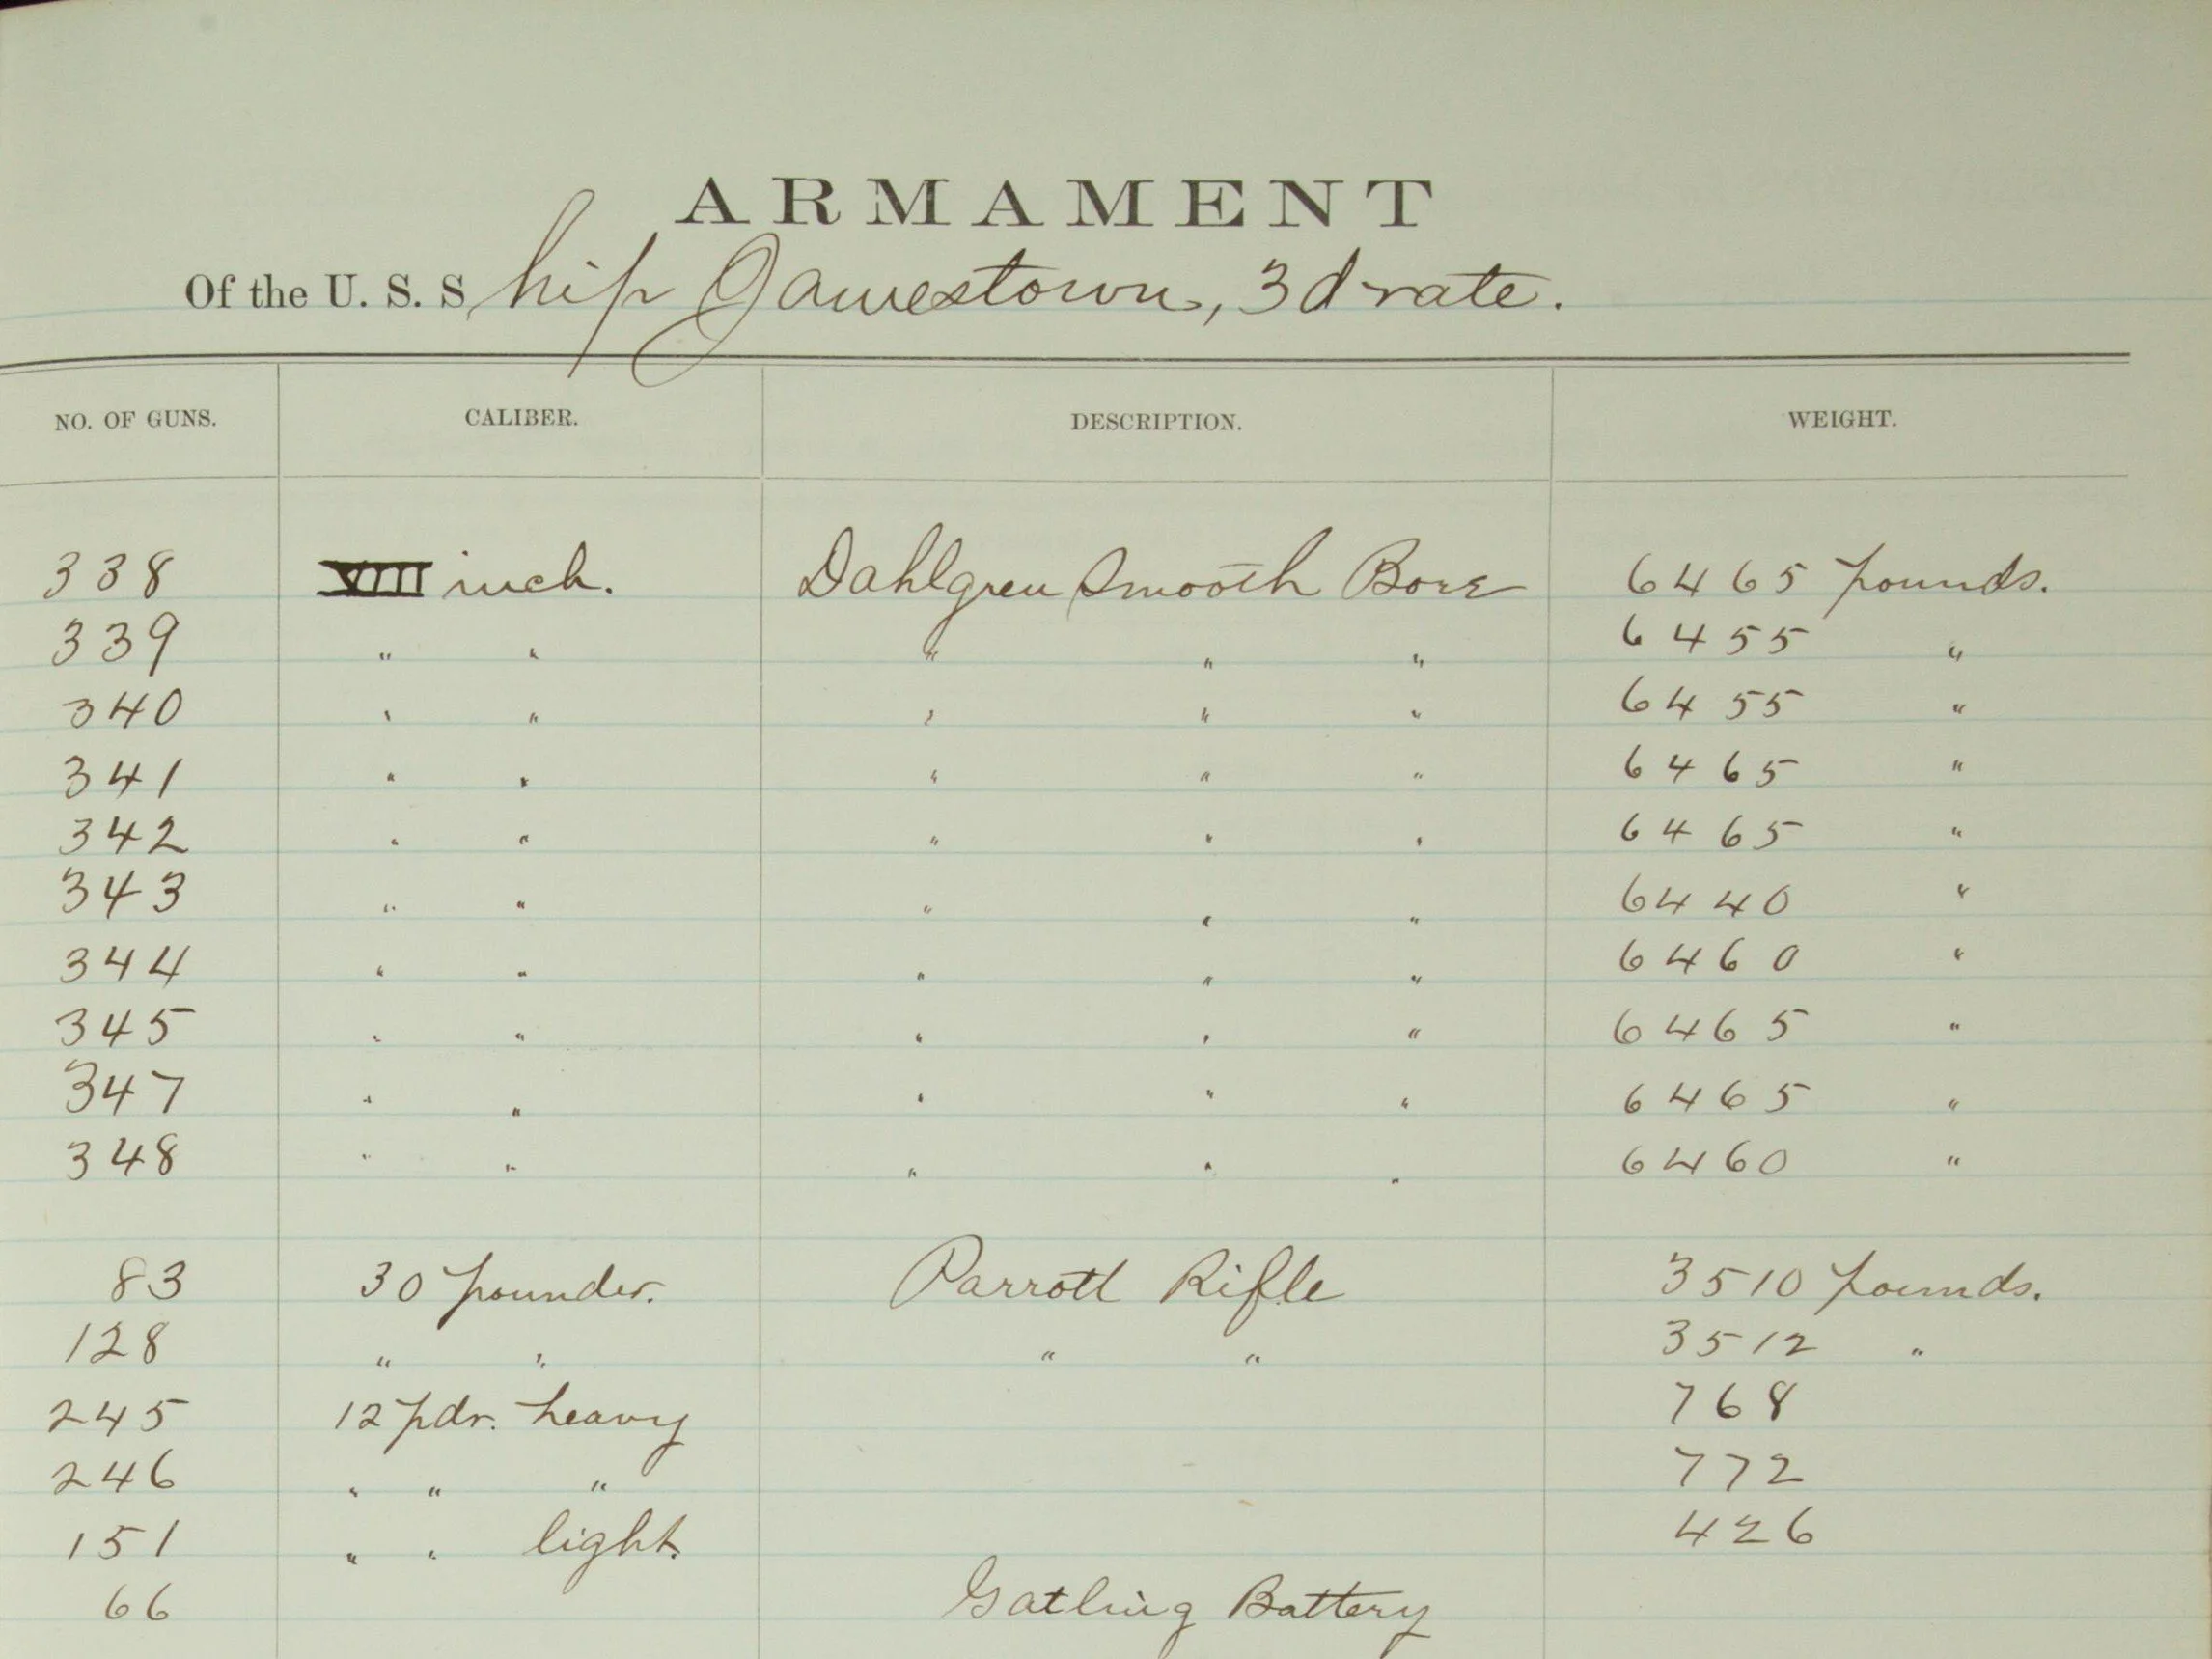 ARMAMENT
Of the U. S. Ship Jamestown, 3d rate.
NO. OF GUNS. CALIBER. DESCRIPTION. WEIGHT.
338 VIII inch. Dahlgren Smooth Bore 6465 pounds.
339 " " " " " 6455 "
340 " " " " " 6455 "
341 " " " " " 6465 "
342 " " " " " 6465 "
343 " " " " " 6440 "
344 " " " " " 6460 "
345 " " " " " 6465 "
347 " " " " " 6465 "
348 " " " " " 6460 "
83 30 pounder. Parrott Rifle 3510 pounds.
128 " " " " 3512 "
245 12 pdr. heavy 768
246 " " " 772
151 " " light. 426
66 Gatling Battery